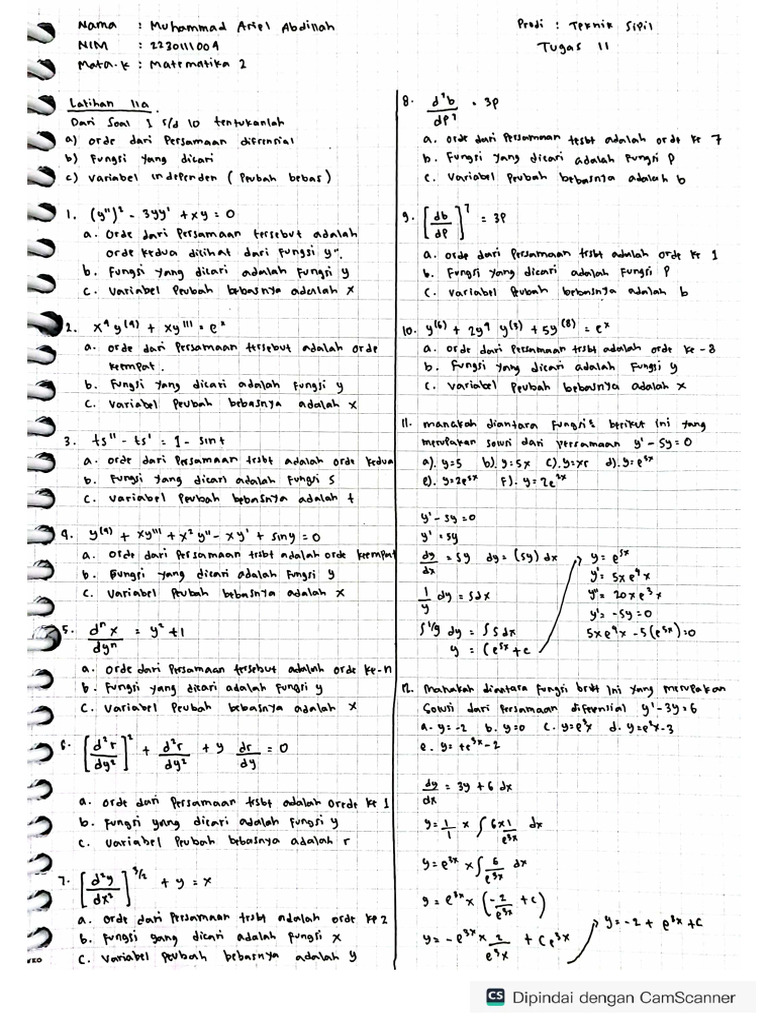 Nama : Muhammad Ariel Abdillah
NIM : 2230111009
Mata.k : Matematika 2
Prodi : Teknik Sipil
Tugas 11
Latihan 11a
Dari Soal 1 s/d 10 tentukanlah
a) orde dari Persamaan difrensial
b) Fungsi yang dicari
c) variabel independen ( Peubah bebas )
1. (y'')² - 3yy' + xy = 0
a. Orde dari Persamaan tersebut adalah
orde kedua dilihat dari fungsi y''.
b. Fungsi yang dicari adalah Fungsi y
c. Variabel Peubah bebasnya adalah x
2. x⁴ y⁽⁴⁾ + xy''' = eˣ
a. orde dari Persamaan tersebut adalah orde
keempat.
b. Fungsi yang dicari adalah Fungsi y
c. Variabel Peubah bebasnya adalah x
3. ts'' - ts' = 1 - sint
a. orde dari Persamaan trsbt adalah orde kedua
b. Fungsi yang dicari adalah Fungsi s
c. variabel Peubah bebasnya adalah t
4. y⁽⁴⁾ + xy''' + x² y'' - xy' + siny = 0
a. orde dari Persamaan trsbt adalah orde keempat
b. Fungsi yang dicari adalah Fungsi y
c. Variabel Peubah bebasnya adalah x
5. dⁿx/dyⁿ = y² + 1
a. Orde dari Persamaan tersebut adalah orde ke-n
b. Fungsi yang dicari adalah Fungsi y
c. Variabel Peubah bebasnya adalah x
6. [d²r/dy²]² + d²r/dy² + y dr/dy = 0
a. orde dari Persamaan trsbt adalah orede ke 1
b. Fungsi yang dicari adalah Fungsi y
c. Variabel Peubah bebasnya adalah r
7. [d²y/dx²]^3/2 + y = x
a. orde dari Persamaan trsbt adalah orde ke 2
b. Fungsi yang dicari adalah Fungsi x
c. Variabel Peubah bebasnya adalah y
8. d⁷b/dp⁷ = 3p
a. orde dari Persamaan trsbt adalah orde ke 7
b. Fungsi yang dicari adalah Fungsi P
c. Variabel Peubah bebasnya adalah b
9. [db/dp]⁷ = 3p
a. orde dari Persamaan trsbt adalah orde ke 1
b. Fungsi yang dicari adalah Fungsi P
c. Variabel Peubah bebasnya adalah b
10. y⁽⁶⁾ + 2y⁴ y⁽³⁾ + 5y⁽⁸⁾ = eˣ
a. orde dari Persamaan trsbt adalah orde ke - 8
b. Fungsi yang dicari adalah Fungsi y
c. Variabel Peubah bebasnya adalah x
11. manakah diantara Fungsi² berikut ini yang
merupakan solusi dari persamaan y' - 5y = 0
a). y=5 b). y=5x c). y=xr d). y=e⁵ˣ
e). y=2e⁵ˣ F). y=2e²ˣ
y' - 5y = 0
y' = 5y
dy/dx = 5y dy = (5y) dx
1/y dy = 5dx
∫ 1/y dy = ∫ 5dx
y = (e⁵ˣ + c
y = e⁵ˣ
y' = 5xe⁴x
y'' = 20xe³x
y' = -5y = 0
5xe⁴x - 5(e⁵ˣ) = 0
12. Manakah diantara Fungsi brkt ini yang merupakan
Solusi dari Persamaan diferensial y' - 3y = 6
a. y = -2 b. y=0 c. y=e³x d. y=e²x-3
e. y= +e³ˣ - 2
dy/dx = 3y + 6 dx
y = 1/1 x ∫ 6x1/e³ˣ dx
y = e³ˣ x ∫ 6/e³ˣ dx
y = e³ˣ x (-2/e³ˣ + c)
y = -e³ˣ x 2/e³x + Ce³x
y = -2 + e³x + C
CS Dipindai dengan CamScanner